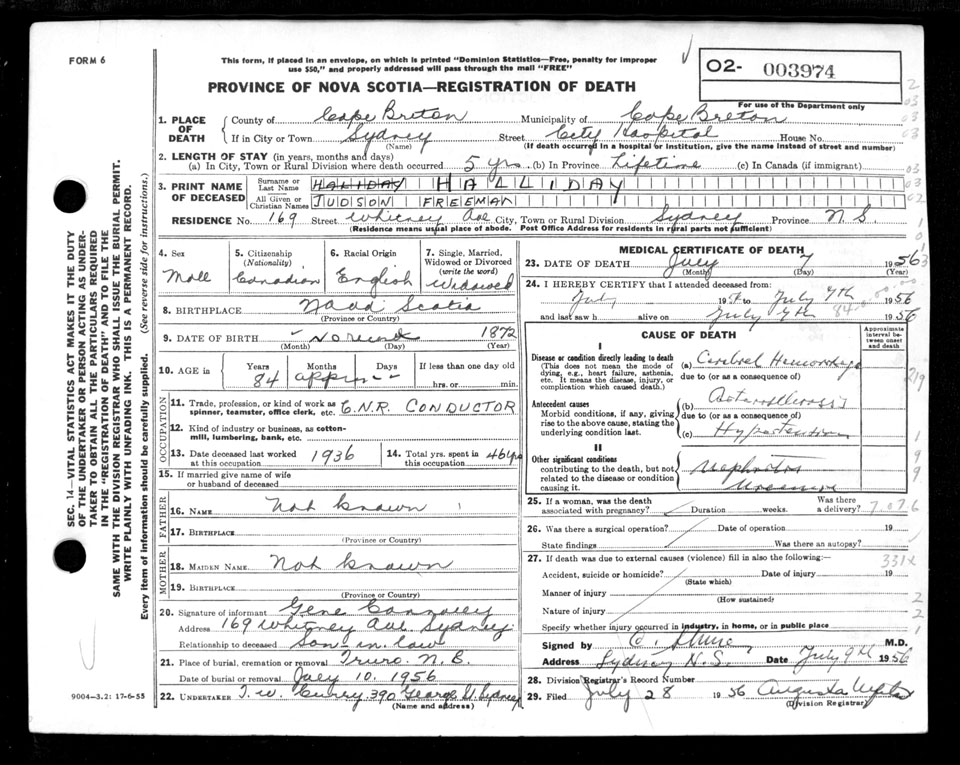 FORM 6
This form, if placed in an envelope, on which is printed "Dominion Statistics—Free, penalty for improper
use $50," and properly addressed will pass through the mail "FREE"
O2- 003974
For use of the Department only
PROVINCE OF NOVA SCOTIA—REGISTRATION OF DEATH
1. PLACE OF DEATH
County of Cape Breton Municipality of Cape Breton
If in City or Town Sydney Street City Hospital House No.
(Name) (If death occurred in a hospital or institution, give the name instead of street and number)
2. LENGTH OF STAY (in years, months and days)
(a) In City, Town or Rural Division where death occurred 5 yrs (b) In Province Lifetime (c) In Canada (if immigrant)
3. PRINT NAME OF DECEASED
Surname or Last Name HALIDAY HALLIDAY
All Given or Christian Names JUDSON FREEMAN
RESIDENCE No. 169 Street Whitney Ave City, Town or Rural Division Sydney Province N.S.
(Residence means usual place of abode. Post Office Address for residents in rural parts not sufficient)
4. Sex
Male
5. Citizenship (Nationality)
Canadian
6. Racial Origin
English
7. Single, Married, Widowed or Divorced (write the word)
Widowed
8. BIRTHPLACE Nova Scotia
(Province or Country)
9. DATE OF BIRTH No record 1872
(Month) (Day) (Year)
10. AGE in Years Months Days If less than one day old
84 approx hrs. or min.
OCCUPATION
11. Trade, profession, or kind of work as spinner, teamster, office clerk, etc. C.N.R. CONDUCTOR
12. Kind of industry or business, as cotton-mill, lumbering, bank, etc.
13. Date deceased last worked at this occupation 1936
14. Total yrs. spent in this occupation 46 yrs
15. If married give name of wife or husband of deceased
FATHER
16. NAME Not known
17. BIRTHPLACE
(Province or Country)
MOTHER
18. MAIDEN NAME Not known
19. BIRTHPLACE
(Province or Country)
20. Signature of informant Gene
Address 169 Whitney Ave. Sydney
Relationship to deceased Son-in law
21. Place of burial, cremation or removal Truro N.
Date of burial or removal July 10. 1956
22. UNDERTAKER T. W. Curry, 390 George St. Sydney
(Name and address)
MEDICAL CERTIFICATE OF DEATH
23. DATE OF DEATH July 7 1956
(Month) (Day) (Year)
24. I HEREBY CERTIFY that I attended deceased from:
July 195 to July 7th 1956
and last saw h alive on July 1956
CAUSE OF DEATH
Approximate interval between onset and death
I
Disease or condition directly leading to death (a) Cerebral Hemorrhage
(This does not mean the mode of dying, e.g., heart failure, asthenia, etc. It means the disease, injury, or complication which caused death.)
due to (or as consequence of)
Antecedent causes (b)
Morbid conditions, if any, giving rise to the above cause, stating the underlying condition last.
due to (or as a consequence of)
(c) Hypertension
II
Other significant conditions Nephritis
contributing to the death, but not related to the disease or condition causing it. Uraemia
25. If a woman, was the death associated with pregnancy? Duration weeks. Was there a delivery?
7076
26. Was there a surgical operation? Date of operation 19
State findings Was there an autopsy?
27. If death was due to external causes (violence) fill in also the following:—
331X
Accident, suicide or homicide? Date of injury 19
(State which)
Manner of injury
(How sustained)
Nature of injury
Specify whether injury occurred in industry, in home, or in public place
Signed by M.D.
Address Sydney N.S. Date July 9th 1956
28. Division Registrar's Record Number
29. Filed July 28 1956 Augusta
(Division Registrar)
9004—3.2: 17-6-55
SEC. 14—VITAL STATISTICS ACT MAKES IT THE DUTY
OF THE UNDERTAKER OR PERSON ACTING AS UNDER-
TAKER TO OBTAIN ALL THE PARTICULARS REQUIRED
IN THE "REGISTRATION OF DEATH" AND TO FILE THE
SAME WITH THE DIVISION REGISTRAR WHO SHALL ISSUE THE BURIAL PERMIT.
WRITE PLAINLY WITH UNFADING INK. THIS IS A PERMANENT RECORD.
Every item of information should be carefully supplied. (See reverse side for instructions.)